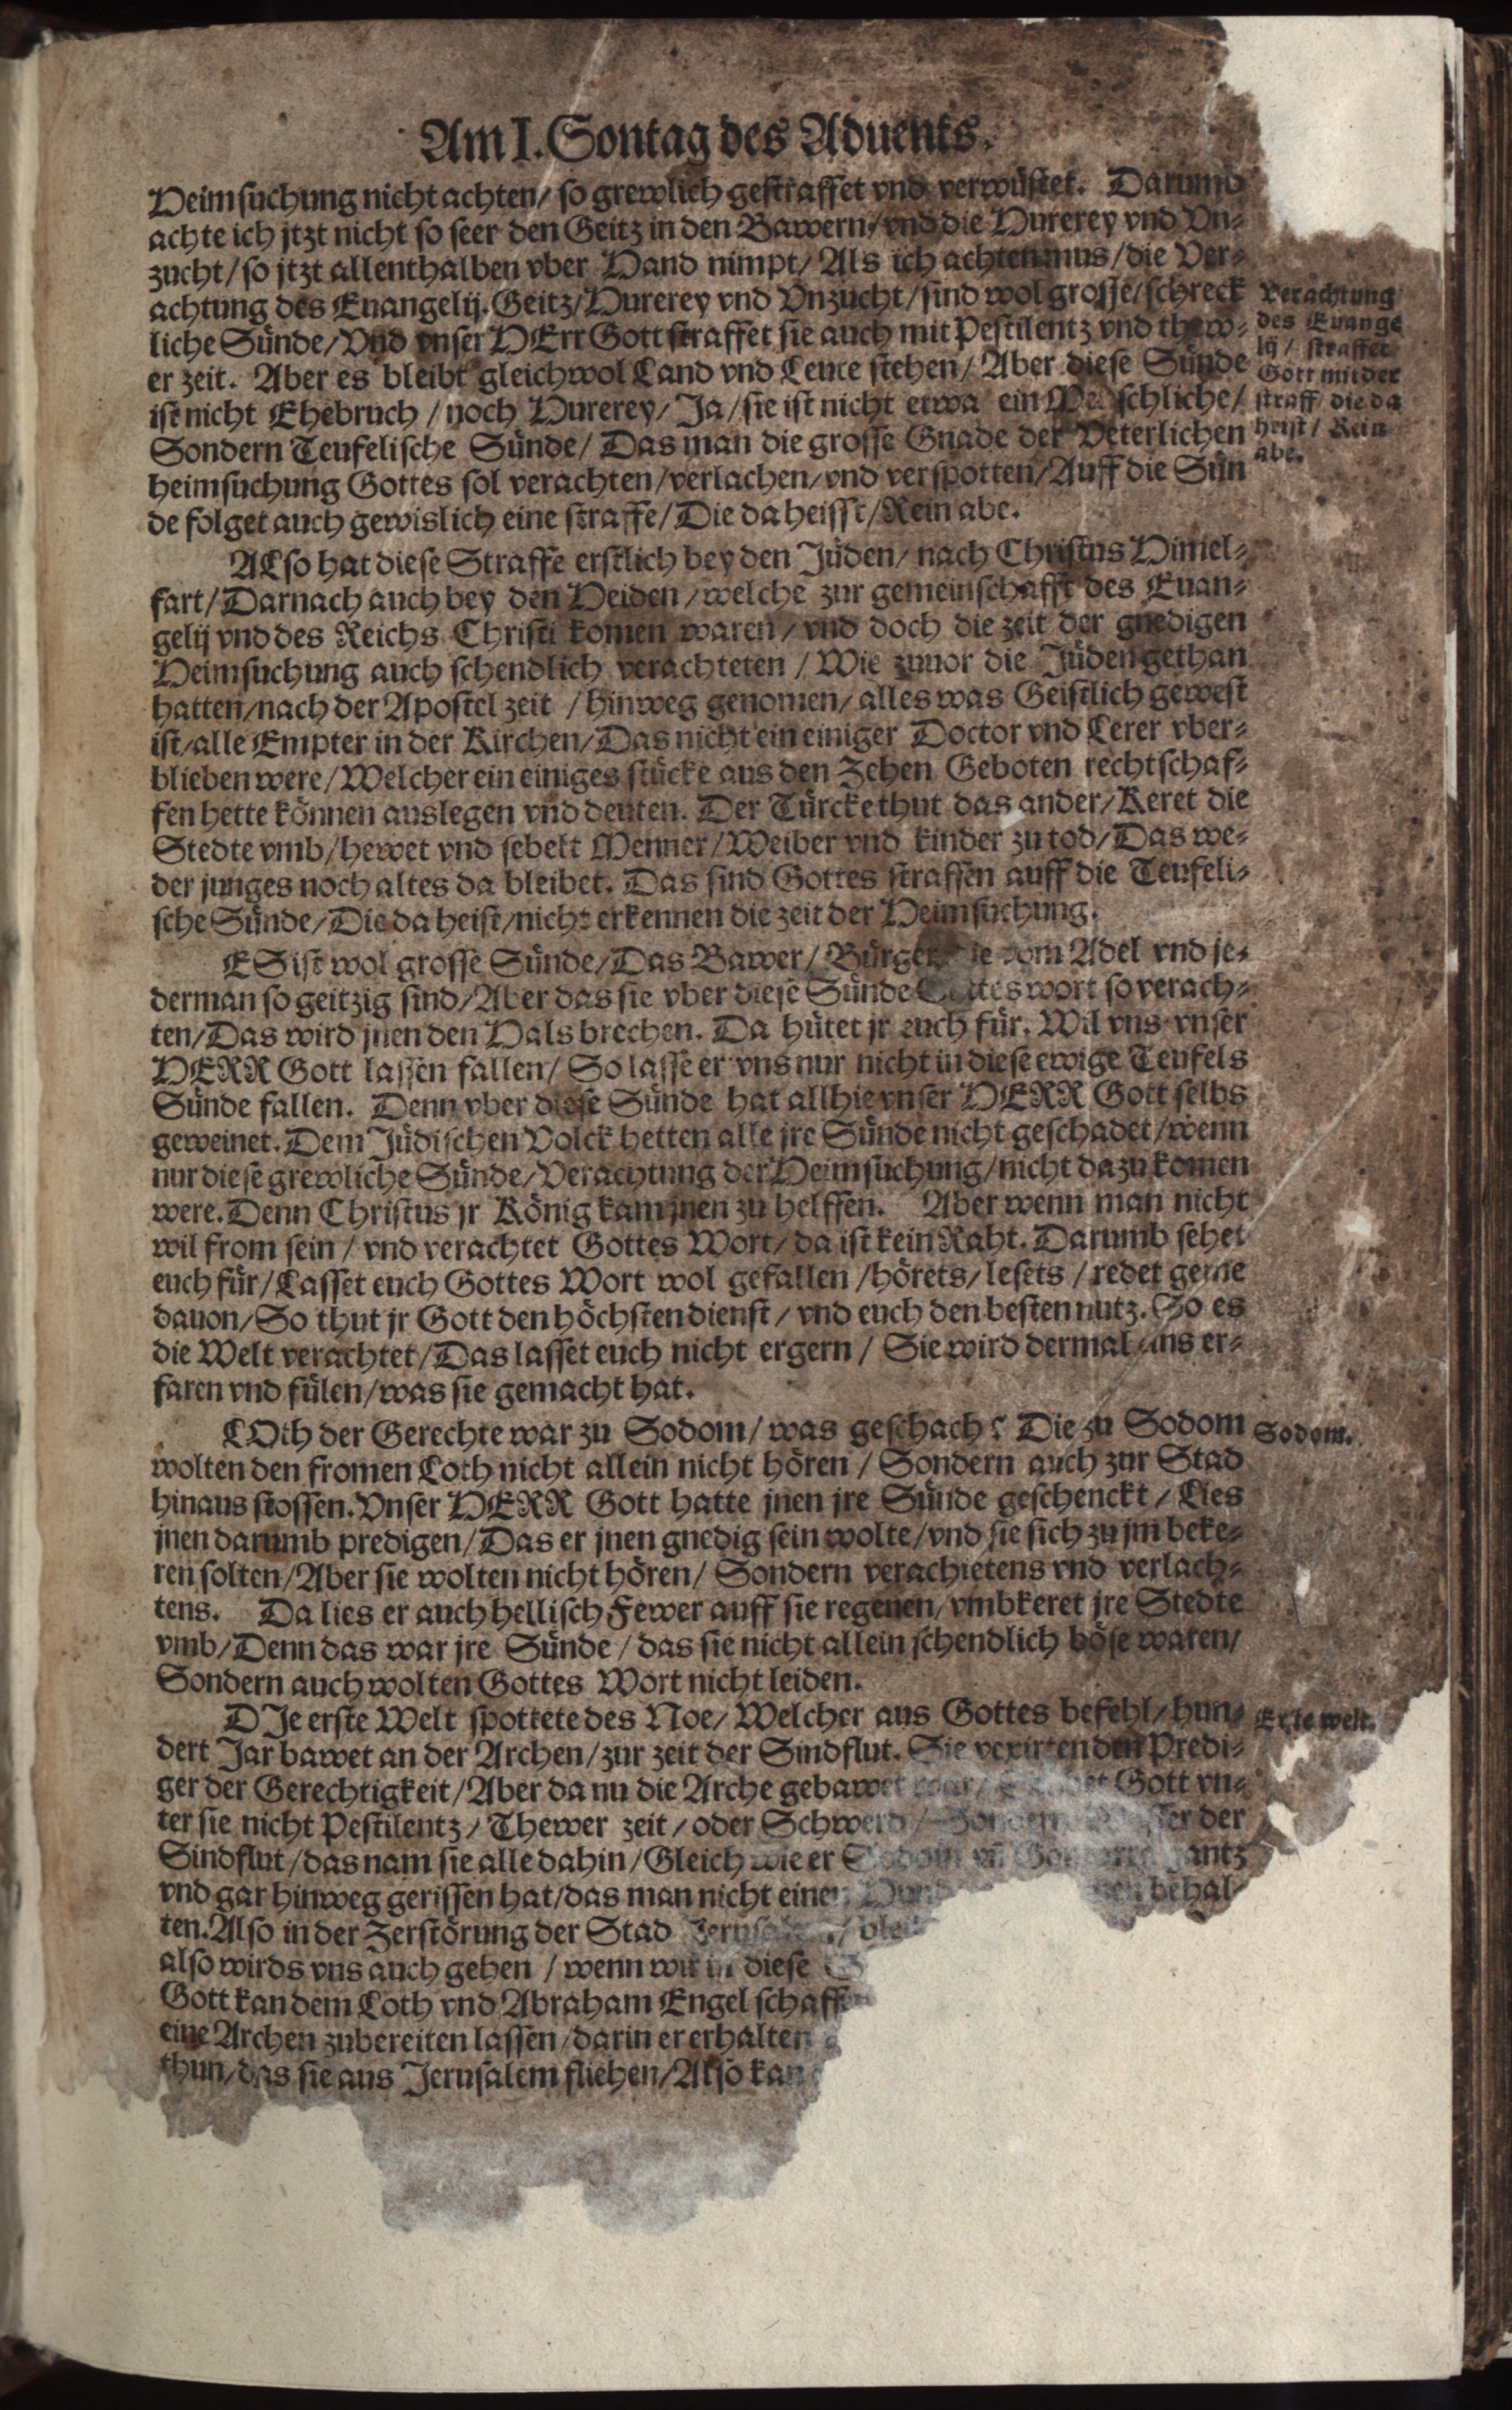 Am I. Sontag des Aduents.
Heimsuchung nicht achten/ so grewlich gestraffet vnd verwüstet. Darumb
achte ich jtzt nicht so seer den Geitz in den Bawern/ vnd die Hurerey vnd Vn-
zucht/ so jtzt allenthalben vber Hand nimpt/ Als ich achten mus/ die Ver-
achtung des Euangelij. Geitz/ Hurerey vnd Vnzucht/ sind wol grosse/ schreck
liche Sünde/ Vnd vnser HErr Gott straffet sie auch mit Pestilentz vnd thew-
er zeit. Aber es bleibt gleichwol Land vnd Leute stehen/ Aber diese Sünde
ist nicht Ehebruch/ noch Hurerey/ Ja/ sie ist nicht etwa ein Menschliche/
Sondern Teufelische Sünde/ Das man die grosse Gnade der Veterlichen
heimsuchung Gottes sol verachten/ verlachen/ vnd verspotten/ Auff die Sün
de folget auch gewislich eine straffe/ Die da heisst/ Rein abe.
Verachtung
des Euange
lij/ straffet
Gott mit der
straff/ die da
heist/ Rein
abe.
ALso hat diese Straffe erstlich bey den Jüden/ nach Christus Himel-
fart/ Darnach auch bey den Heiden/ welche zur gemeinschafft des Euan-
gelij vnd des Reichs Christi komen waren/ vnd doch die zeit der gnedigen
Heimsuchung auch schendlich verachteten/ Wie zuuor die Jüden gethan
hatten/ nach der Apostel zeit/ hinweg genomen/ alles was Geistlich gewest
ist/ alle Empter in der Kirchen/ Das nicht ein einiger Doctor vnd Lerer vber-
blieben were/ Welcher ein einiges stücke aus den Zehen Geboten rechtschaf-
fen hette können auslegen vnd deuten. Der Türcke thut das ander/ Keret die
Stedte vmb/ hewet vnd sebelt Menner/ Weiber vnd kinder zu tod/ Das we-
der junges noch altes da bleibet. Das sind Gottes straffen auff die Teufeli-
sche Sünde/ Die da heist/ nicht erkennen die zeit der Heimsuchung.
ES ist wol grosse Sünde/ Das Bawer/ Bürger die vom Adel vnd je-
derman so geitzig sind/ Aber das sie vber diese Sünde Gottes wort so verach-
ten/ Das wird jnen den Hals brechen. Da hütet jr euch für. Wil vns vnser
HERR Gott lassen fallen/ So lasse er vns nur nicht in diese ewige Teufels
Sünde fallen. Denn vber diese Sünde hat allhie vnser HERR Gott selbs
geweinet. Dem Jüdischen Volck hetten alle jre Sünde nicht geschadet/ wenn
nur diese grewliche Sünde/ Verachtung der Heimsuchung/ nicht dazu komen
were. Denn Christus jr König kam jnen zu helffen. Aber wenn man nicht
wil from sein/ vnd verachtet Gottes Wort/ da ist kein Raht. Darumb sehet
euch für/ Lasset euch Gottes Wort wol gefallen/ hörets/ lesets/ redet gerne
dauon/ So thut jr Gott den höchsten dienst/ vnd euch den besten nutz. So es
die Welt verachtet/ Das lasset euch nicht ergern/ Sie wird dermal eins er-
faren vnd fülen/ was sie gemacht hat.
LOth der Gerechte war zu Sodom/ was geschach? Die zu Sodom
Sodom.
wolten den fromen Loth nicht allein nicht hören/ Sondern auch zur Stad
hinaus stossen. Vnser HERR Gott hatte jnen jre Sünde geschenckt/ Lies
jnen darumb predigen/ Das er jnen gnedig sein wolte/ vnd sie sich zu jm beke-
ren solten/ Aber sie wolten nicht hören/ Sondern verachtetens vnd verlach-
tens. Da lies er auch hellisch Fewer auff sie regenen/ vmbkeret jre Stedte
vmb/ Denn das war jre Sünde/ das sie nicht allein schendlich böse waren/
Sondern auch wolten Gottes Wort nicht leiden.
DIe erste Welt spottete des Noe/ Welcher aus Gottes befehl/ hun-
Erste welt.
dert Jar bawet an der Archen/ zur zeit der Sindflut. Sie vexirten den Predi-
ger der Gerechtigkeit/ Aber da nu die Arche gebawet war/ Gott vn-
ter sie nicht Pestilentz/ Thewer zeit/ oder Schwerd/ Sondern Wasser der
Sindflut/ das nam sie alle dahin/ Gleich wie er Sodom vñ Gomorra gantz
vnd gar hinweg gerissen hat/ das man nicht einen Hund behal-
ten. Also in der Zerstörung der Stad Jerusalem/
also wirds vns auch gehen/ wenn wir in diese
Gott kan dem Loth vnd Abraham Engel schaffen
eine Archen zubereiten lassen/ darin er erhalten
thun/ das sie aus Jerusalem fliehen/ Also kan